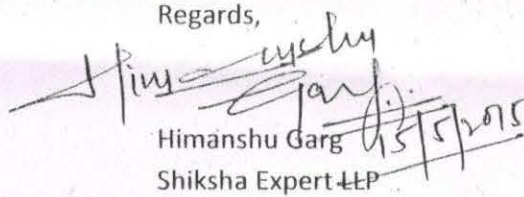 Regards,
Himanshu
Garg
15/5/2015
Himanshu Garg
Shiksha Expert LLP